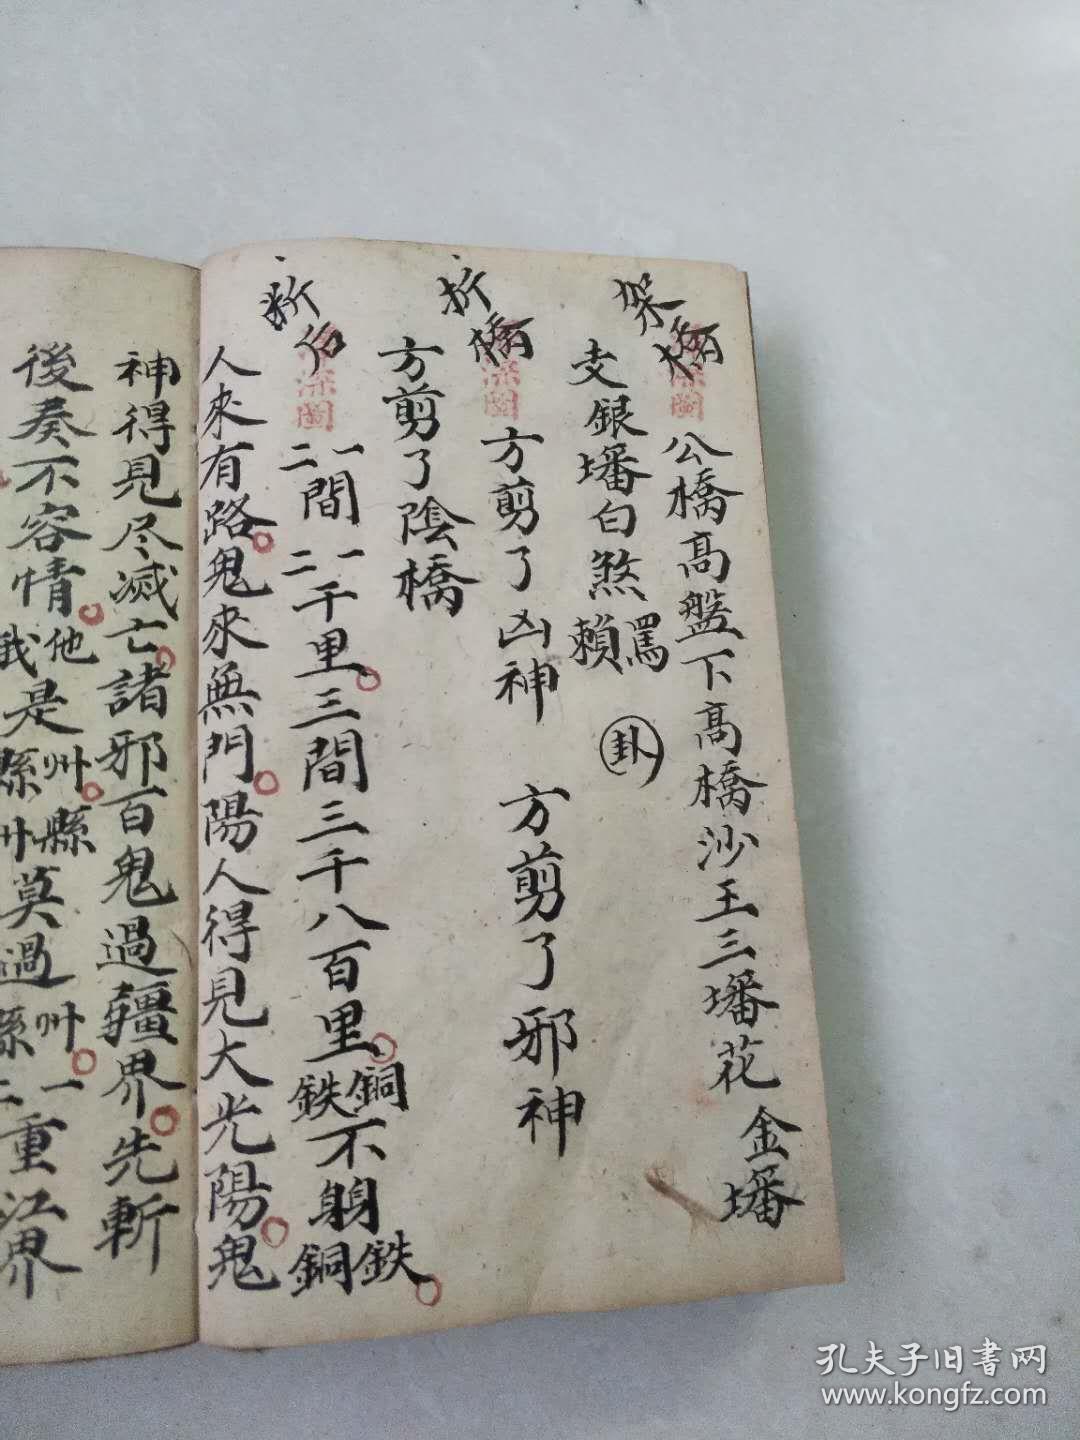 架橋
公橋高盤下高橋沙王三墦花金墦
支銀墦白煞罵賴 卦
折橋
方剪了凶神 方剪了邪神
方剪了陰橋
断后
一二間一二千里三間三千八百里銅鉄不躬鉄銅
人來有路鬼來無門陽人得見大光陽鬼
神得見尽滅亡諸邪百鬼過疆界先斬
後奏不容情他我是州縣縣州莫過州縣一二重江界
孔夫子旧書网
www.kongfz.com